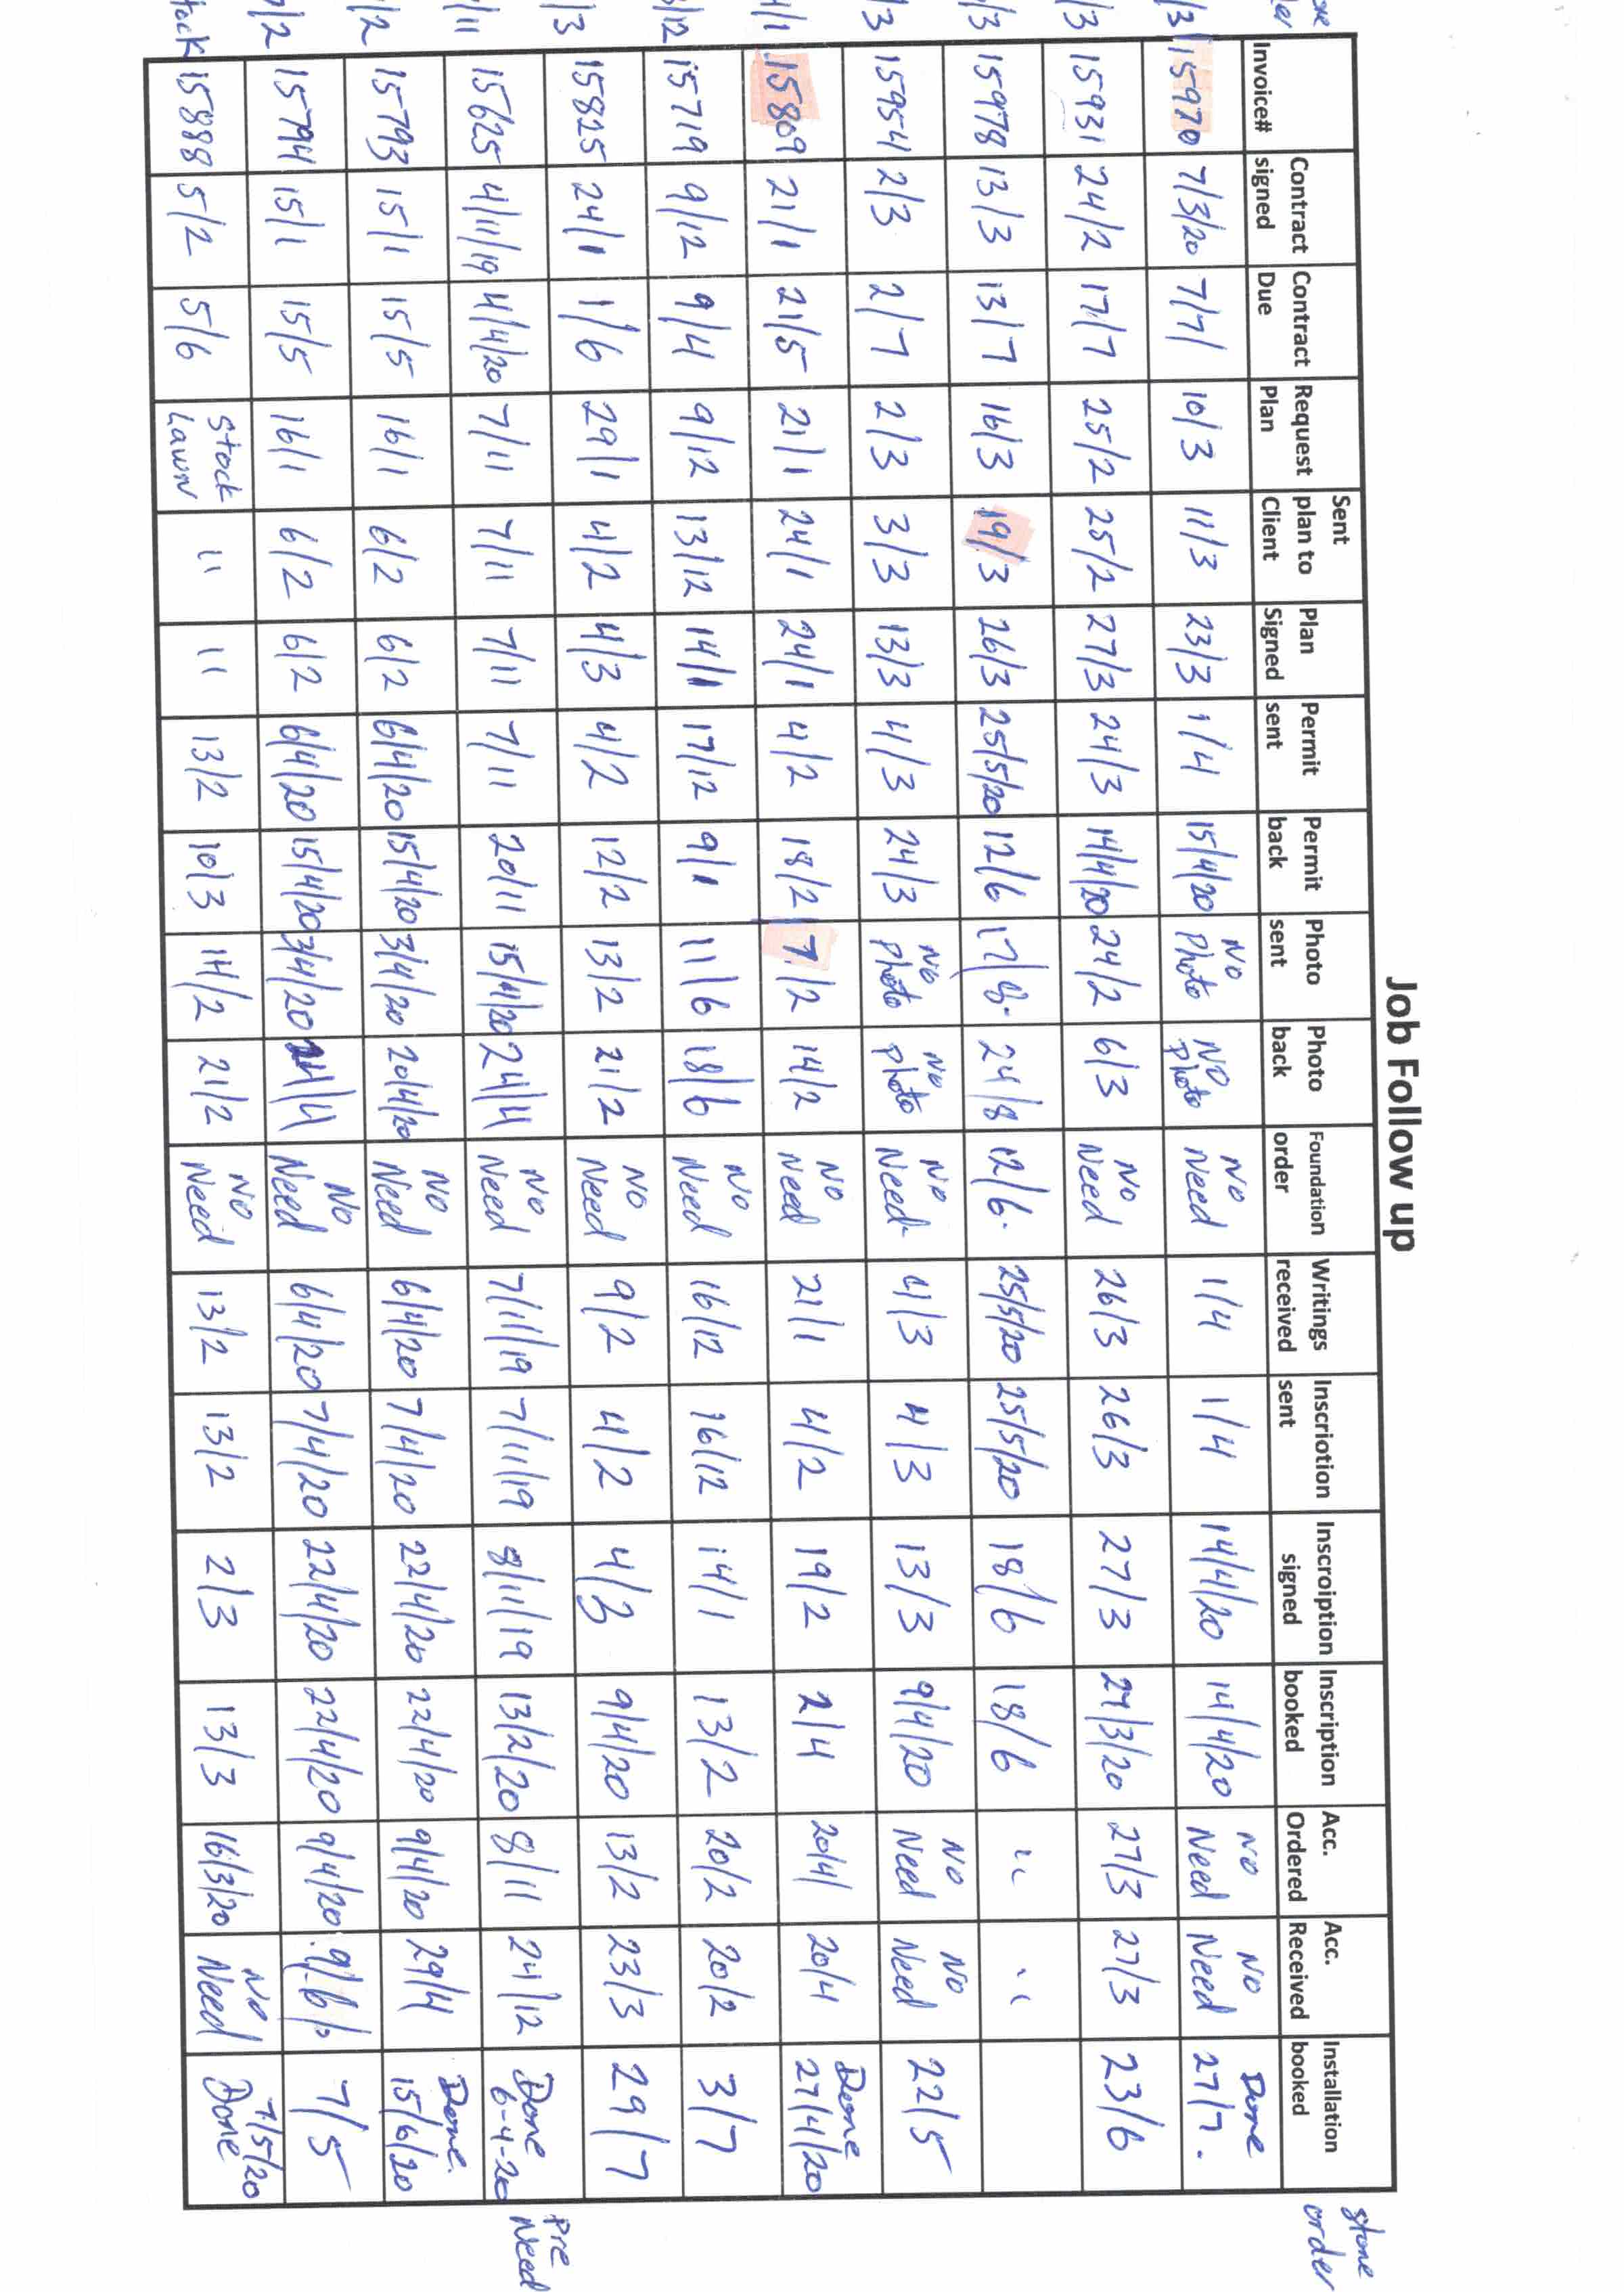 Job Follow up
Invoice# Contract signed Contract Due Request Plan Sent plan to Client Plan Signed Permit sent Permit back Photo sent Photo back Foundation order Writings received Inscriotion sent Inscroiption signed Inscription booked Acc. Ordered Acc. Received Installation booked stone order
/3 15970 7/3/20 7/7/ 10/3 11/3 23/3 1/4 15/4/20 No Photo No photo No Need 1/4 1/4 14/4/20 14/4/20 No Need No Need Done 27/7.
/3 15931 24/2 17/7 25/2 25/2 27/3 24/3 14/4/20 24/2 6/3 No Need 26/3 26/3 27/3 27/3/20 27/3 27/3 23/6
/3 15978 13/3 13/7 16/3 19/3 26/3 25/5/20 12/6 17/8. 24/8 12/6. 25/5/20 25/5/20 18/6 18/6 " "
/3 15954 2/3 2/7 2/3 3/3 13/3 4/3 24/3 No Photo No photo No Need 4/3 4/3 13/3 9/4/20 No Need No Need 22/5
4/1 15809 21/1 21/5 21/1 24/1 24/1 4/2 18/2 7/2 14/2 No Need 21/1 4/2 19/2 2/4 20/4/ 20/4 Done 27/4/20
/12 15719 9/12 9/4 9/12 13/12 14/1 17/12 9/1 11/6 18/6 No Need 16/12 16/12 14/1 13/2 20/2 20/2 3/7
/3 15825 24/1 1/6 29/1 4/2 4/3 4/2 12/2 13/2 21/2 No Need 9/2 4/2 4/3 9/4/20 13/2 23/3 29/7
/11 15625 4/11/19 4/4/20 7/11 7/11 7/11 7/11 20/11 15/4/20 24/4 No Need 7/11/19 7/11/19 8/11/19 13/2/20 8/11 24/12 Done 6-4-20 Pre Need
/2 15793 15/1 15/5 16/1 6/2 6/2 6/4/20 15/4/20 3/4/20 20/4/20 No Need 6/4/20 7/4/20 22/4/20 22/4/20 9/4/20 29/4 Done. 15/6/20
/2 15794 15/1 15/5 16/1 6/2 6/2 6/4/20 15/4/20 3/4/20 No Need 6/4/20 7/4/20 22/4/20 22/4/20 9/4/20 9/6/ 7/5
15888 5/2 5/6 Stock Lawn " " 13/2 10/3 14/2 21/2 No Need 13/2 13/2 2/3 13/3 16/3/20 No Need 7/5/20 Done